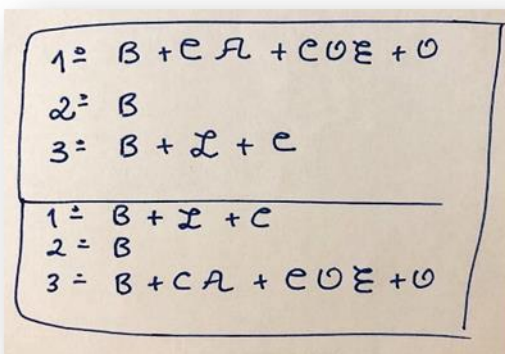 1º B + C A + C O E + O
2º B
3º B + L + C
1º B + L + C
2º B
3º B + C A + C O E + O